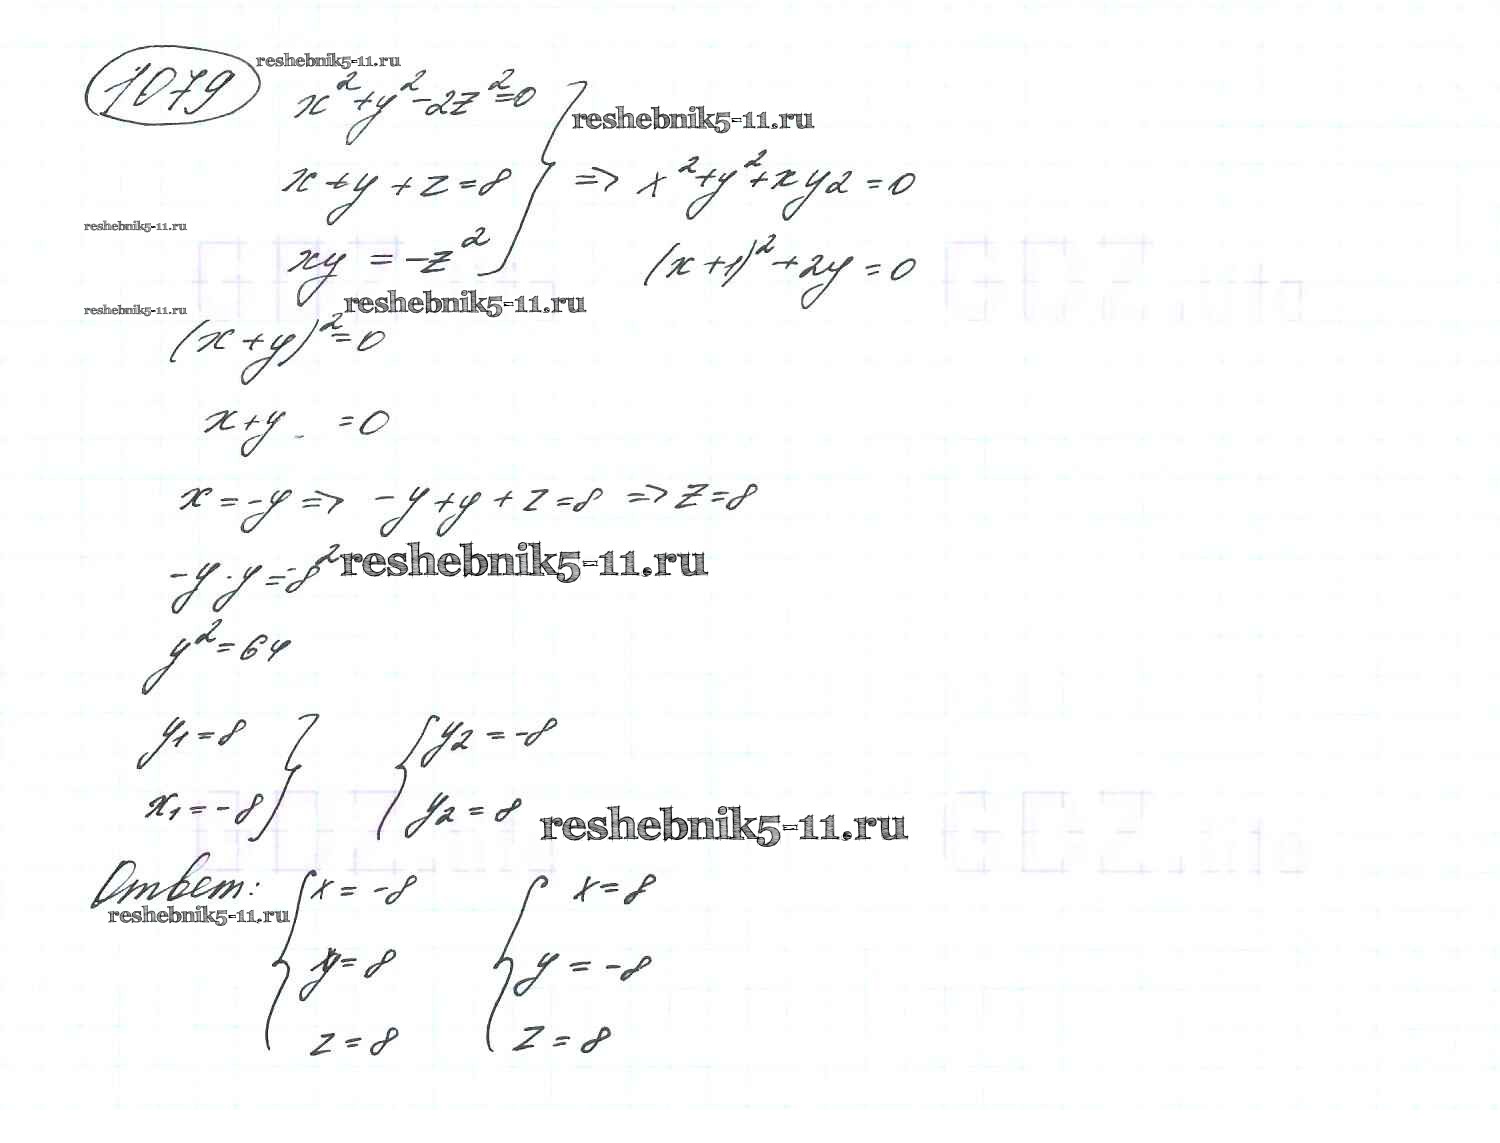 1079
reshebnik5-11.ru
x²+y²-2z²=0
reshebnik5-11.ru
x+y+z=8 => x²+y²+xy2=0
reshebnik5-11.ru
xy=-z² (x+1)²+2y=0
reshebnik5-11.ru
reshebnik5-11.ru
(x+y)²=0
x+y =0
x=-y => -y+y+z=8 => z=8
-y·y=-8²
reshebnik5-11.ru
y²=64
y1=8 y2=-8
x1=-8 y2=8
reshebnik5-11.ru
Ответ: x=-8 x=8
reshebnik5-11.ru
y=8 y=-8
z=8 z=8